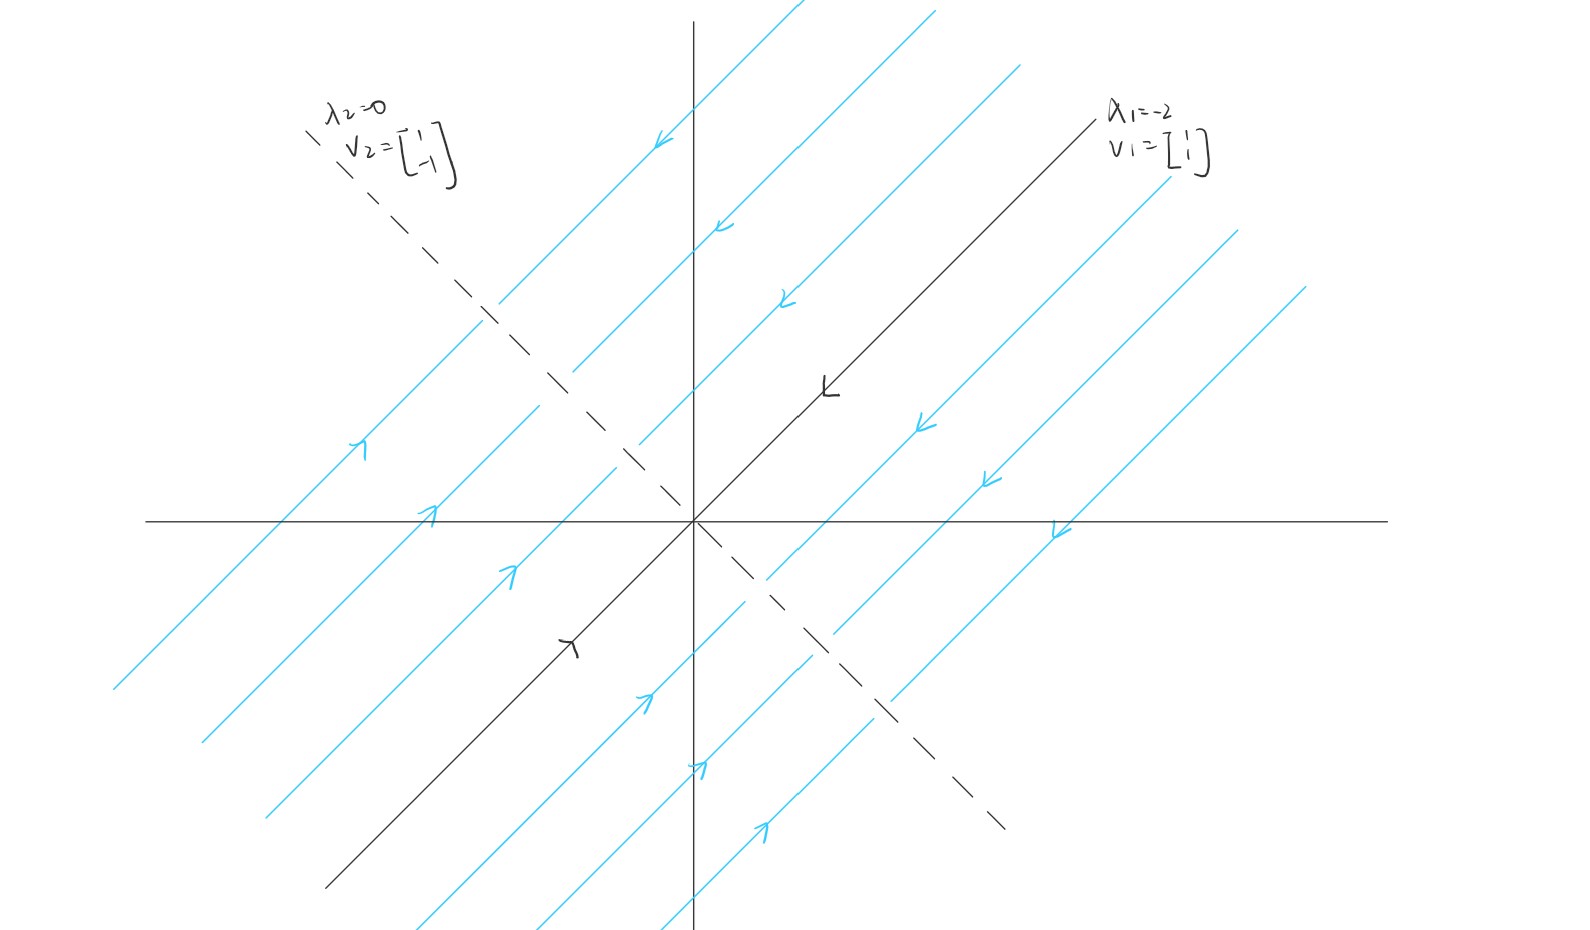 λ2=0
V2=[1
-1]
λ1=-2
V1=[1
1]